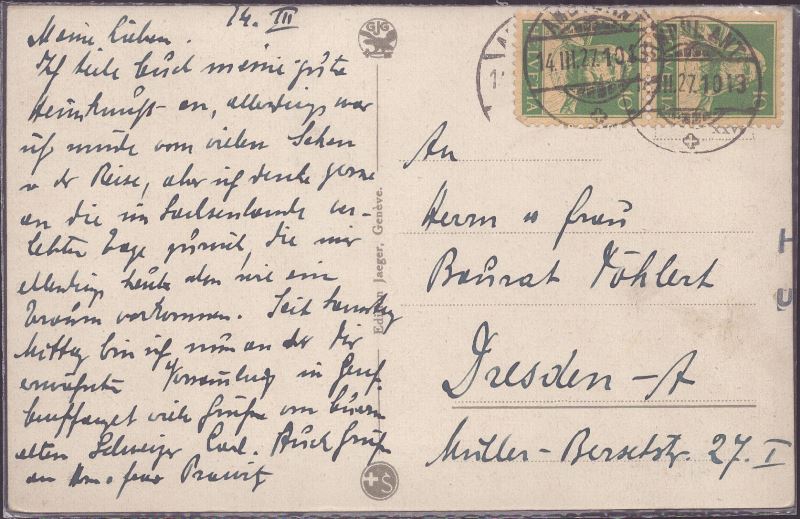 14. III
Meine Lieben.
Ich teile Euch meine gute
Heimkunft an, allerdings war
ich müde vom vielen Sehen
u der Reise, aber ich denke gerne
an die im Sachsenlande ver-
lebten Tage zurück, die mir
allerdings heute schon wie ein
Traum vorkommen. Seit Samstag
Mittag bin ich nun an der Dir
erwähnten in Genf.
viele Grüße von Euerm
alten Schweizer Carl. Auch Grüße
an Hrn. u Frau
GJG
Edition Jaeger, Genève.
+S
14.III.27.10
III.27.1013
HELVETIA
10
10
XXV
An
Herrn u Frau
Baurat Töhlert
Dresden-A
Müller-Bersetstr. 27. I